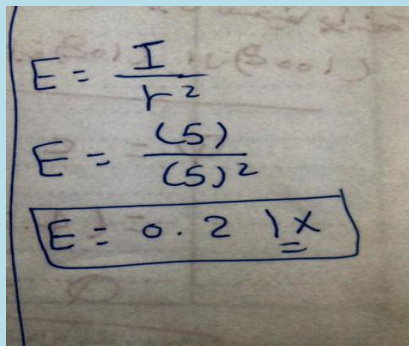 E = I / r²
E = (5) / (5)²
E = 0.2 lx